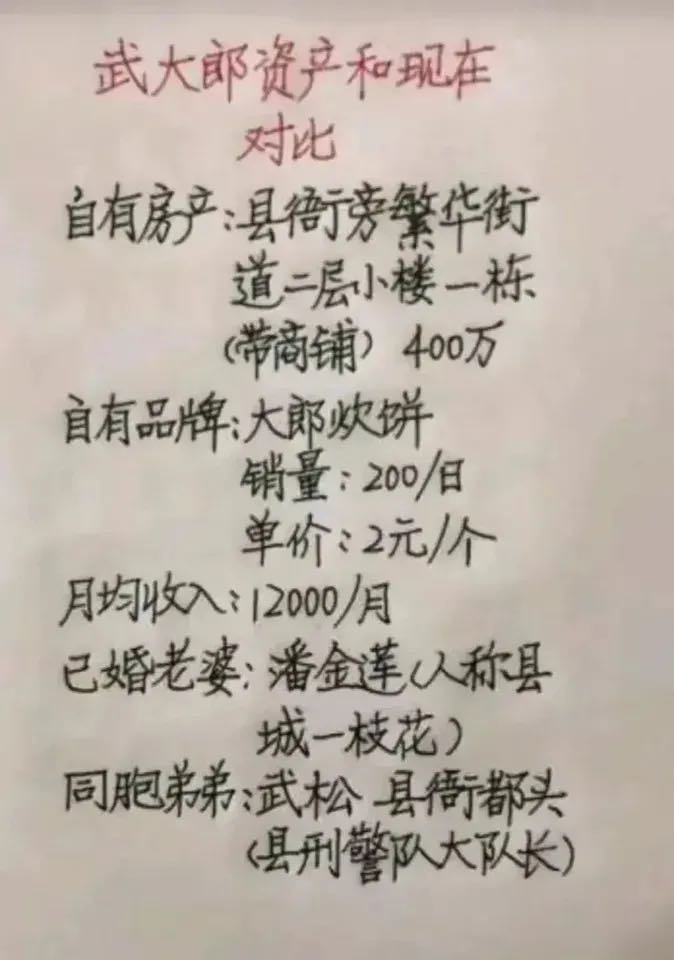 武大郎资产和现在
对比
自有房产:县衙旁繁华街
道二层小楼一栋
(带商铺) 400万
自有品牌:大郎炊饼
销量:200/日
单价:2元/个
月均收入:12000/月
已婚老婆:潘金莲(人称县
城一枝花)
同胞弟弟:武松 县衙都头
(县刑警队大队长)